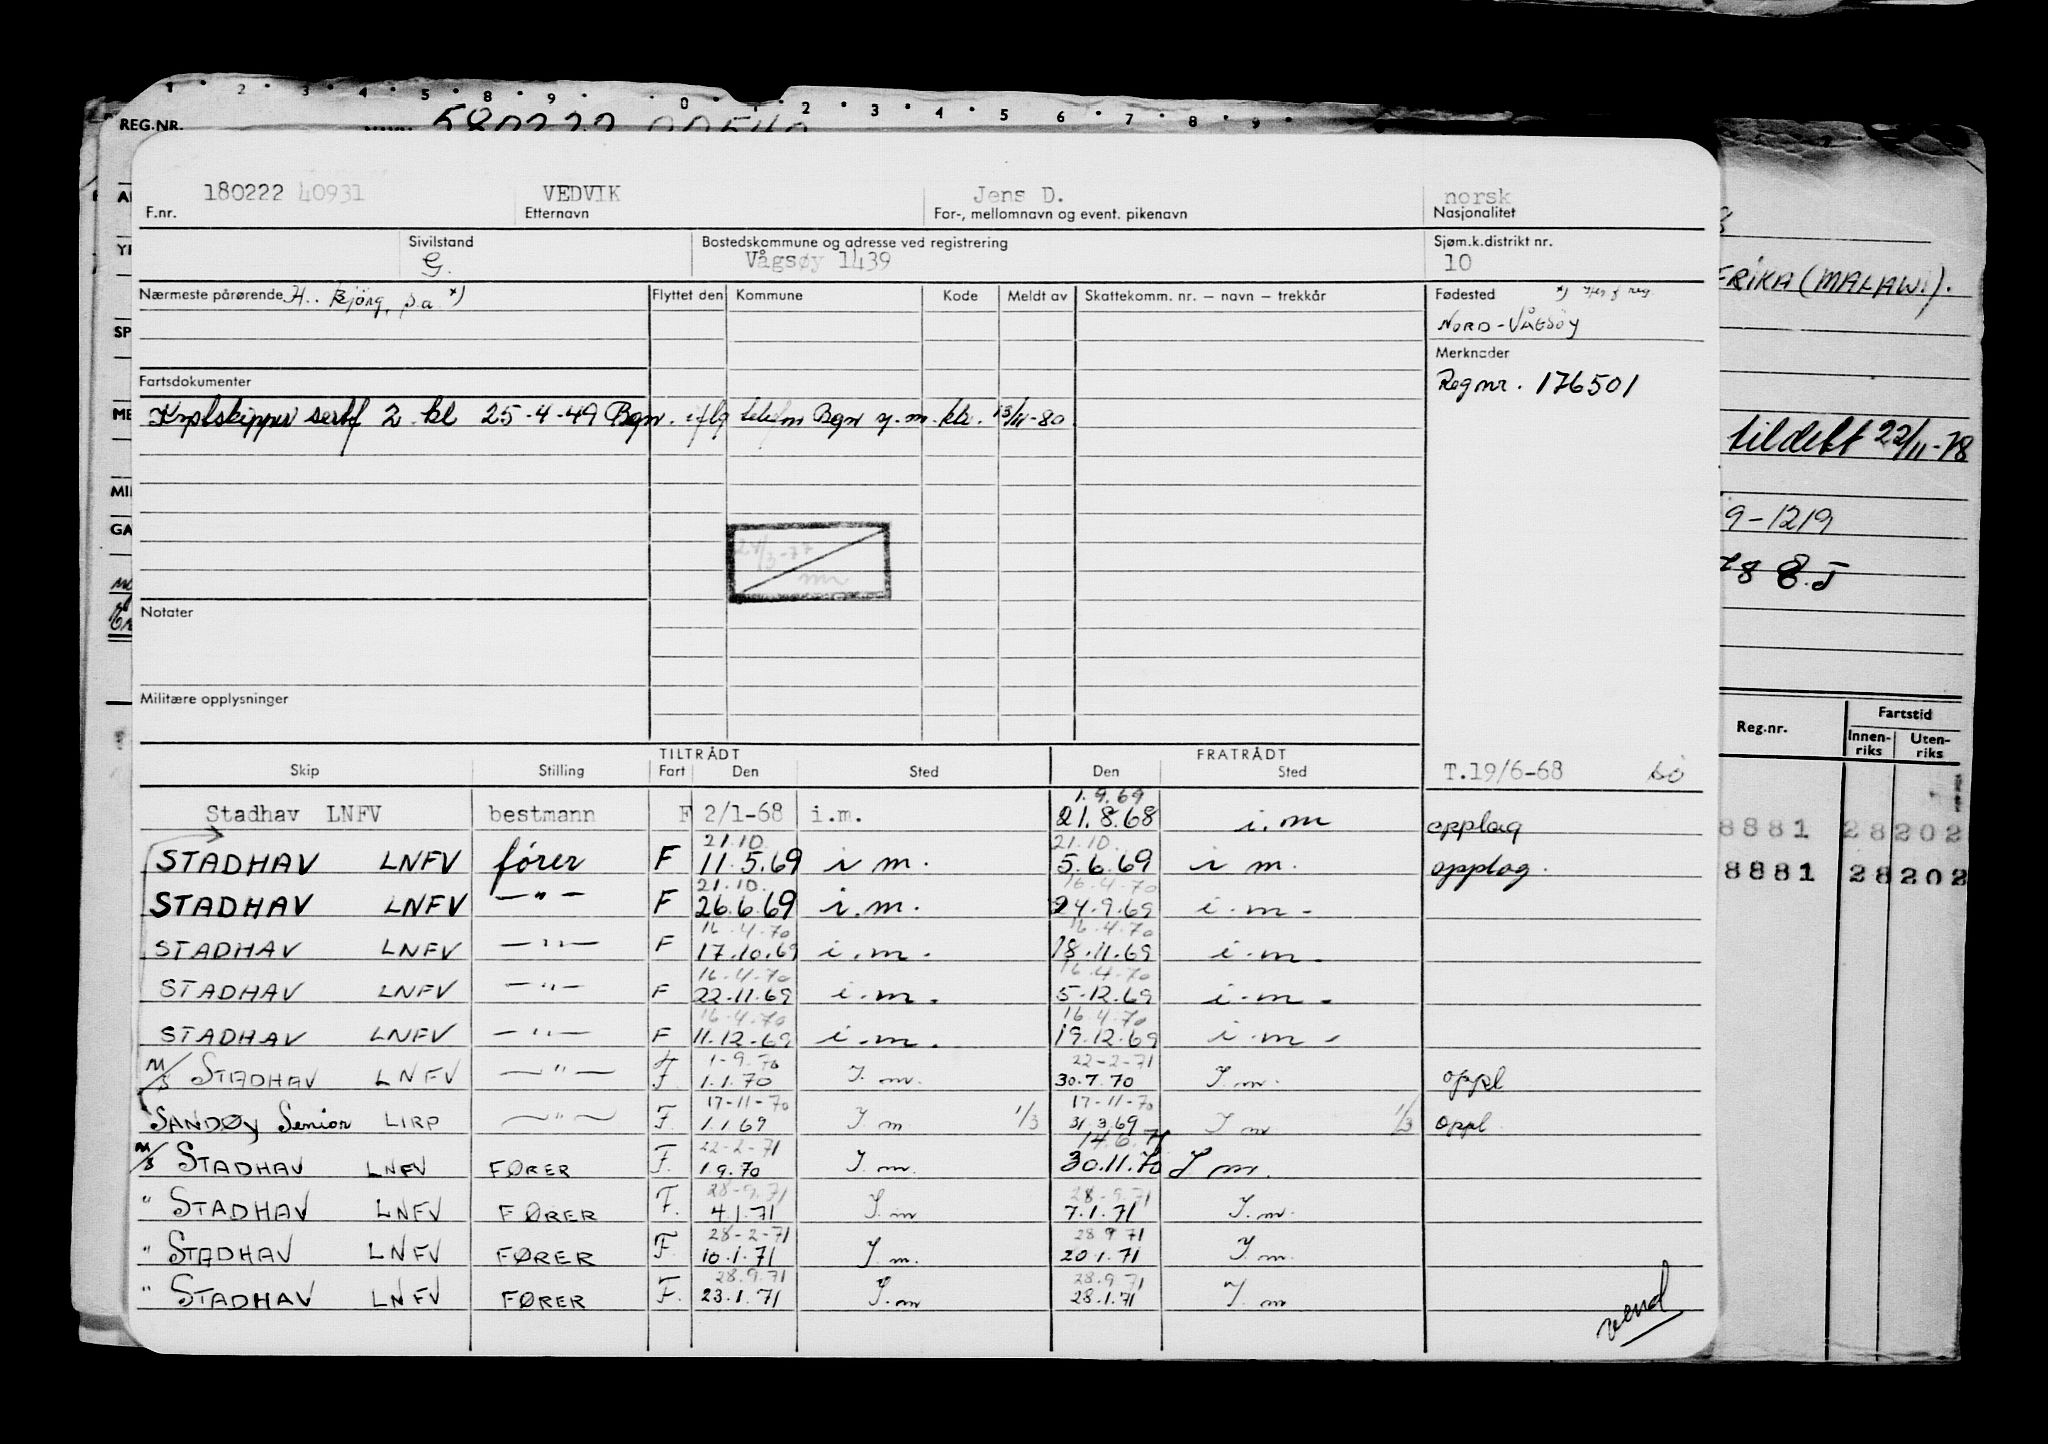 1 2 3 4 5 8 9 0 1 2 3 4 5 6 7 8 9
REG.NR.
180222 40931 VEDVIK Jens D. norsk
F.nr. Etternavn For-, mellomnavn og event. pikenavn Nasjonalitet
Sivilstand Bostedskommune og adresse ved registrering Sjøm.k.distrikt nr.
G. Vågsøy 1439 10
Nærmeste pårørende H.. Bjørg, s.a *) Flyttet den Kommune Kode Meldt av Skattekomm. nr. — navn — trekkår Fødested
NORD-VÅGSØY
Merknader
Fartsdokumenter Regnr. 176501
Kystskipper sertf 2 kl 25-4-49 Bgn. iflg telefon Bgn m.m. 13/11-80
24/3-77
Notater
Militære opplysninger
TILTRÅDT FRATRÅDT
Skip Stilling Fart Den Sted Den Sted T.19/6-68
1.9.69
Stadhav LNFV bestmann F 2/1-68 i.m. 21.8.68 i.m opplag
21.10. 21.10.
STADHAV LNFV fører F 11.5.69 i m. 5.6.69 i m. opplag.
21.10. 16.4.70
STADHAV LNFV —"— F 26.6.69 i.m. 24.9.69 i.m.
16.4.70 16.4.70
STADHAV LNFV —"— F 17.10.69 i.m. 18.11.69 i.m.
16.4.70 16.4.70
STADHAV LNFV —"— F 22.11.69 i.m. 5.12.69 i.m.
16.4.70 16.4.70
STADHAV LNFV —"— F 11.12.69 i.m. 19.12.69 i.m.
1-9.70 22-2-71
M/S STADHAV LNFV —"— F. 1.1.70 I.m. 30.7.70 I.m. oppl
17-11-70 17-11-70
SANDØY Senior LIRP —"— F. 1.1.69 I.m 1/3 31.3.69 I m 1/3 oppl.
22-2-71 14.6.71
M/S STADHAV LNFV FØRER F. 1.9.70 I.m. 30.11.70 I m.
28-9.71 28-9.71
" STADHAV LNFV FØRER F. 4.1.71 I.m 7.1.71 I.m.
28-2-71 28.9 71
" STADHAV LNFV FØRER F. 10.1.71 I.m. 20.1.71 I m.
28.9.71 28.9 71
" STADHAV LNFV FØRER F. 23.1.71 I.m 28.1.71 I.m
vend
FRIKA (MALAWI).
tildelt 22/11-78
9-1219
78 8.J
Reg.nr. Fartstid
Innen-riks Uten-riks
8881 28202
8881 28202